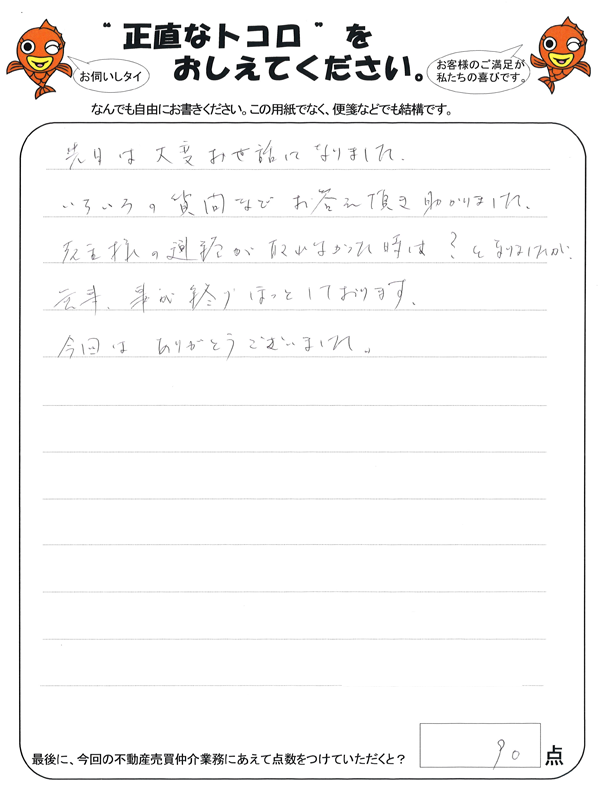 “正直なトコロ”を
おしえてください。
お伺いしタイ
お客様のご満足が
私たちの喜びです。
なんでも自由にお書きください。この用紙でなく、便箋などでも結構です。
先日は大変お世話になりました.
いろいろの質問などお答え頂き助かりました.
売主様の連絡が取れなかった時は?となりましたが.
無事、終りほっとしております.
今回はありがとうございました。
最後に、今回の不動産売買仲介業務にあえて点数をつけていただくと?
90点